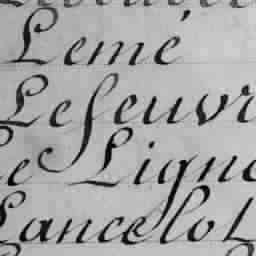 Lemé
Lefeuvr
Le Ligne
Lancelot